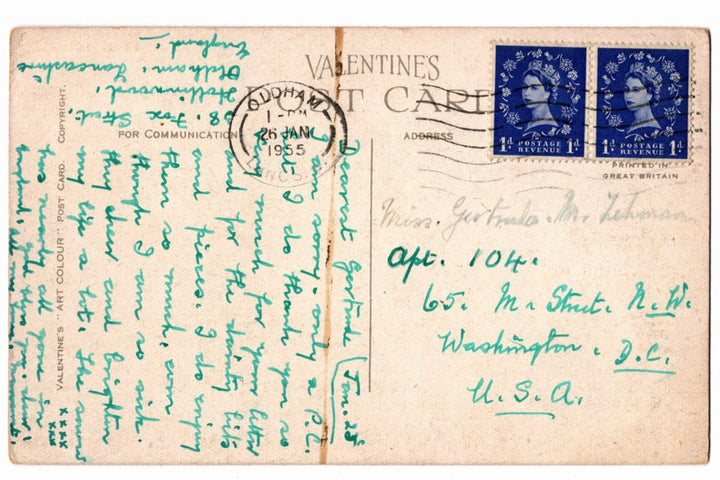 VALENTINE'S
POST CARD
FOR COMMUNICATION
ADDRESS
OLDHAM
1- PM
26 JAN
1955
LANCS.
POSTAGE
REVENUE
1d 1d
POSTAGE
REVENUE
1d 1d
PRINTED IN
GREAT BRITAIN
Miss. Gertrude. M. Lehman
Apt. 104.
65. M. Street. N.W.
Washington. D.C.
U.S.A.
Fox Street.
Hollinwood.
Oldham. Lancashire
England.
Dearest Gertrude (Jan. 25
I am sorry - only a P.C.
but I do thank you so
much for your letter
and for the dainty bits
and pieces. I do enjoy
them so much, even
though I am so sick.
they cheer and brighten
my life a lot. The snow
has nearly all gone
xxxx
xxx
VALENTINE'S "ART COLOUR" POST CARD. COPYRIGHT.